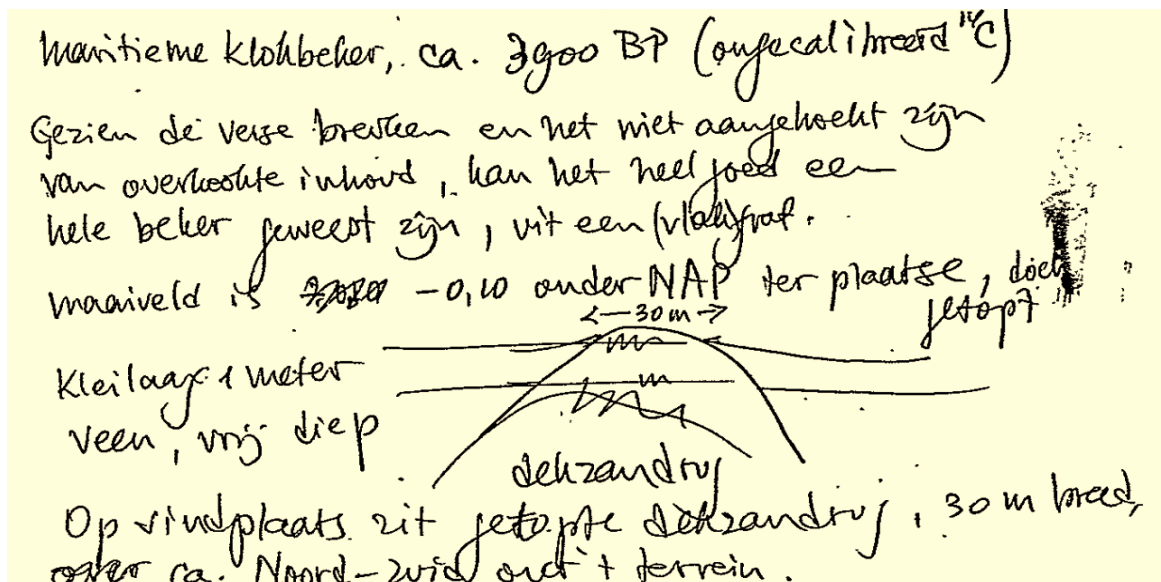 Maritieme Klokbeker, ca. 3900 BP (ongecalibreerd ¹⁴C)
Gezien de verse breuken en het niet aangekoekt zijn
van overkookte inhoud, kan het heel goed een
hele beker geweest zijn, uit een (vlak)graf.
maaiveld is -0,10 onder NAP ter plaatse, doch
getopt
<-30m->
Kleilaag 1 meter
veen, vrij diep
dekzandrug
Op vindplaats zit getopte dekzandrug, 30 m breed,
over ca. Noord-zuid ond 't terrein.